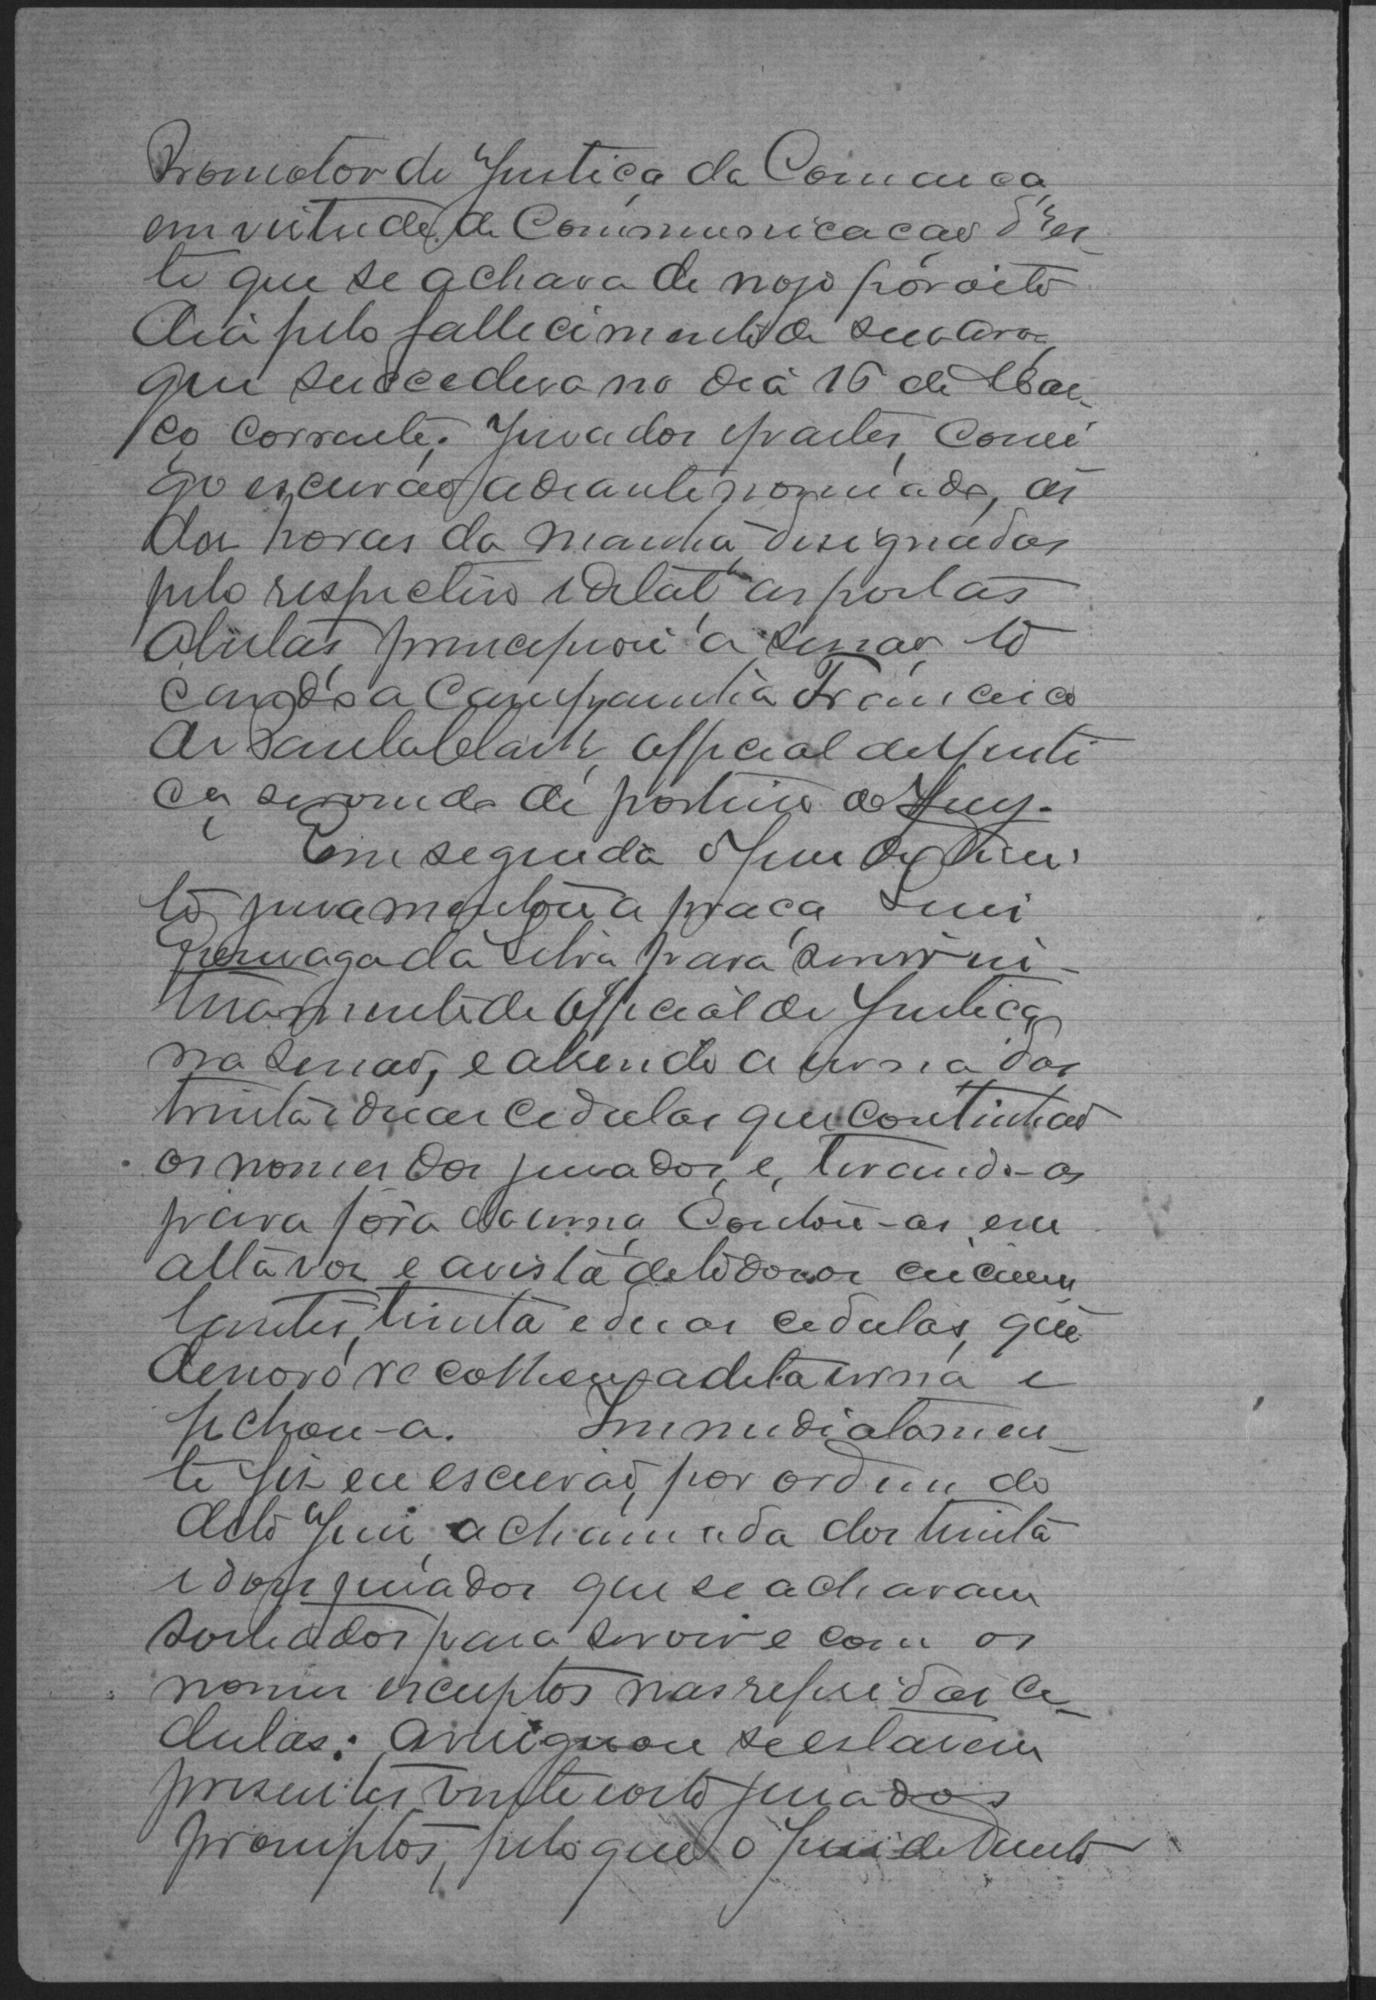 Promotor de Justiça da Comarca
em virtude de Communicacão d'es-
te que se achava de nojo por oito
dia pelo fallecimento de seu avo,
que succedera no dia 15 de Mar-
ço corrente, Jurados e partes, comi
go escrivão adiante nomiado, ás
dez horas da manhã, designadas
pelo respectivo edital as portas
abertas, principiou a sessão, to
cando a campanhia Francisco
de Paula Clark, official de Justi
ça servindo de porteiro do Jury.
Em seguida o Juiz de Direi
to juramentou a praça Luis
Gonzaga da Silva para servir in-
terinamente de Official de Justiça
na sessão, e abrindo a urna das
trinta e duas cedulas que continhão
os nomes dos jurados, e, tirando-as
para fóra da urna, Contou-as em
alta voz e a vista de todos os circuns
tantes, trinta e duas cedulas, que
de novo recolheu a dita urna e
fechou-a. Immediatamen-
te fiz eu escrivão, por ordem do
dito Juiz, a chamada dos trinta
e dous jurados que se achavam
sorteados para servir e com os
nomes escriptos nas referidas ce-
dulas: averiguou se estarem
presentes vinte e oito jurados
promptos, pelo que o Juiz de Direito